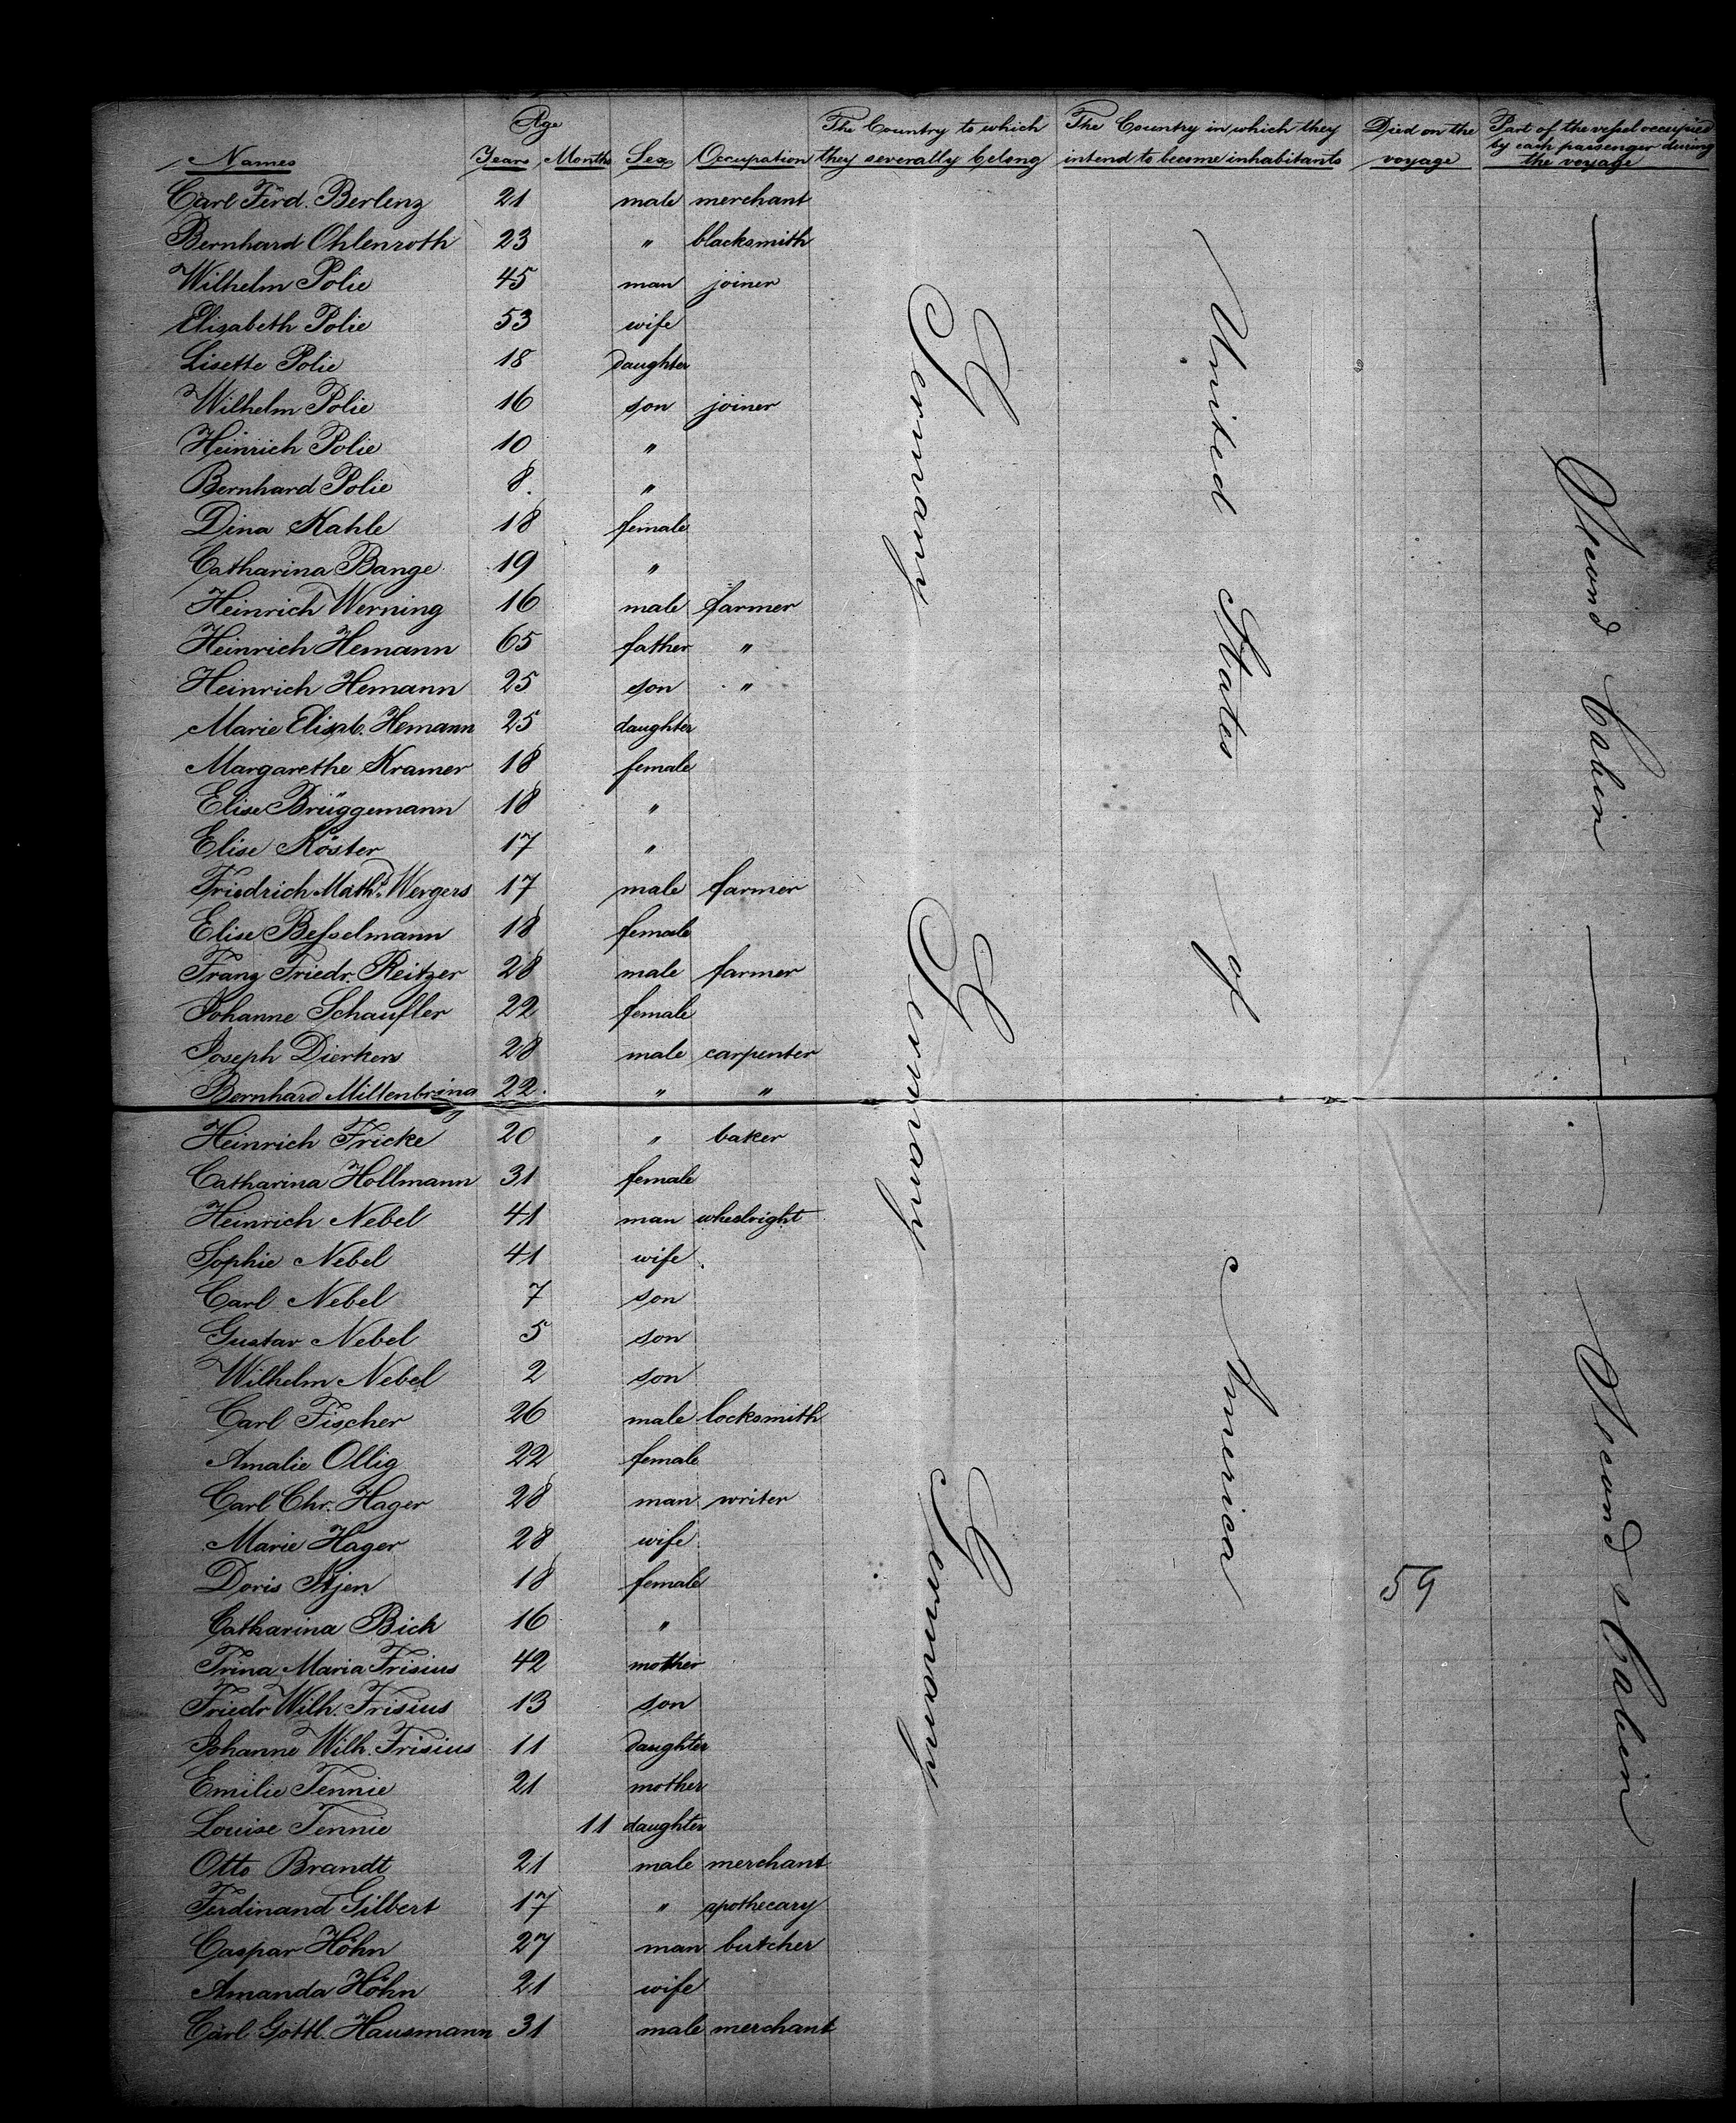 Names Age Years Months Sex Occupation The Country to which they severally belong The Country in which they intend to become inhabitants Died on the voyage Part of the vessel occupied by each passenger during the voyage
Carl Ferd. Berlenz 21 male merchant
Bernhard Ohlenroth 23 " blacksmith
Wilhelm Polie 45 man joiner
Elisabeth Polie 53 wife
Lisette Polie 18 daughter
Wilhelm Polie 16 son joiner
Heinrich Polie 10 "
Bernhard Polie 8. "
Dina Kahle 18 female
Catharina Bange 19 "
Heinrich Werning 16 male farmer
Heinrich Hemann 65 father "
Heinrich Hemann 25 son "
Marie Elisab. Hemann 25 daughter
Margarethe Kramer 18 female
Elise Brüggemann 18 "
Elise Köster 17 "
Friedrich Math. Wergers 17 male farmer
Elise Besselmann 18 female
Franz Friedr. Reitzer 28 male farmer
Johanne Schaufler 22 female
Joseph Dierkens 28 male carpenter
Bernhard Millenbring 22. " "
Heinrich Fricke 20 " baker
Catharina Hollmann 31 female
Heinrich Nebel 41 man wheelright
Sophie Nebel 41 wife
Carl Nebel 7 son
Gustav Nebel 5 son
Wilhelm Nebel 2 son
Carl Fischer 26 male locksmith
Amalie Ollig 22 female
Carl Chr. Hager 28 man writer
Marie Hager 28 wife
Doris Stjen 18 female
Catharina Bick 16 "
Trina Maria Frisius 42 mother
Friedr Wilh. Frisius 13 son
Johanne Wilh. Frisius 11 daughter
Emilie Tennie 21 mother
Louise Tennie 11 daughter
Otto Brandt 21 male merchant
Ferdinand Gilbert 17 " apothecary
Caspar Höhn 27 man butcher
Amanda Höhn 21 wife
Carl Gottl. Hausmann 31 male merchant
Germany
Germany
Germany
United States of America
59
Second Cabin
Second Cabin